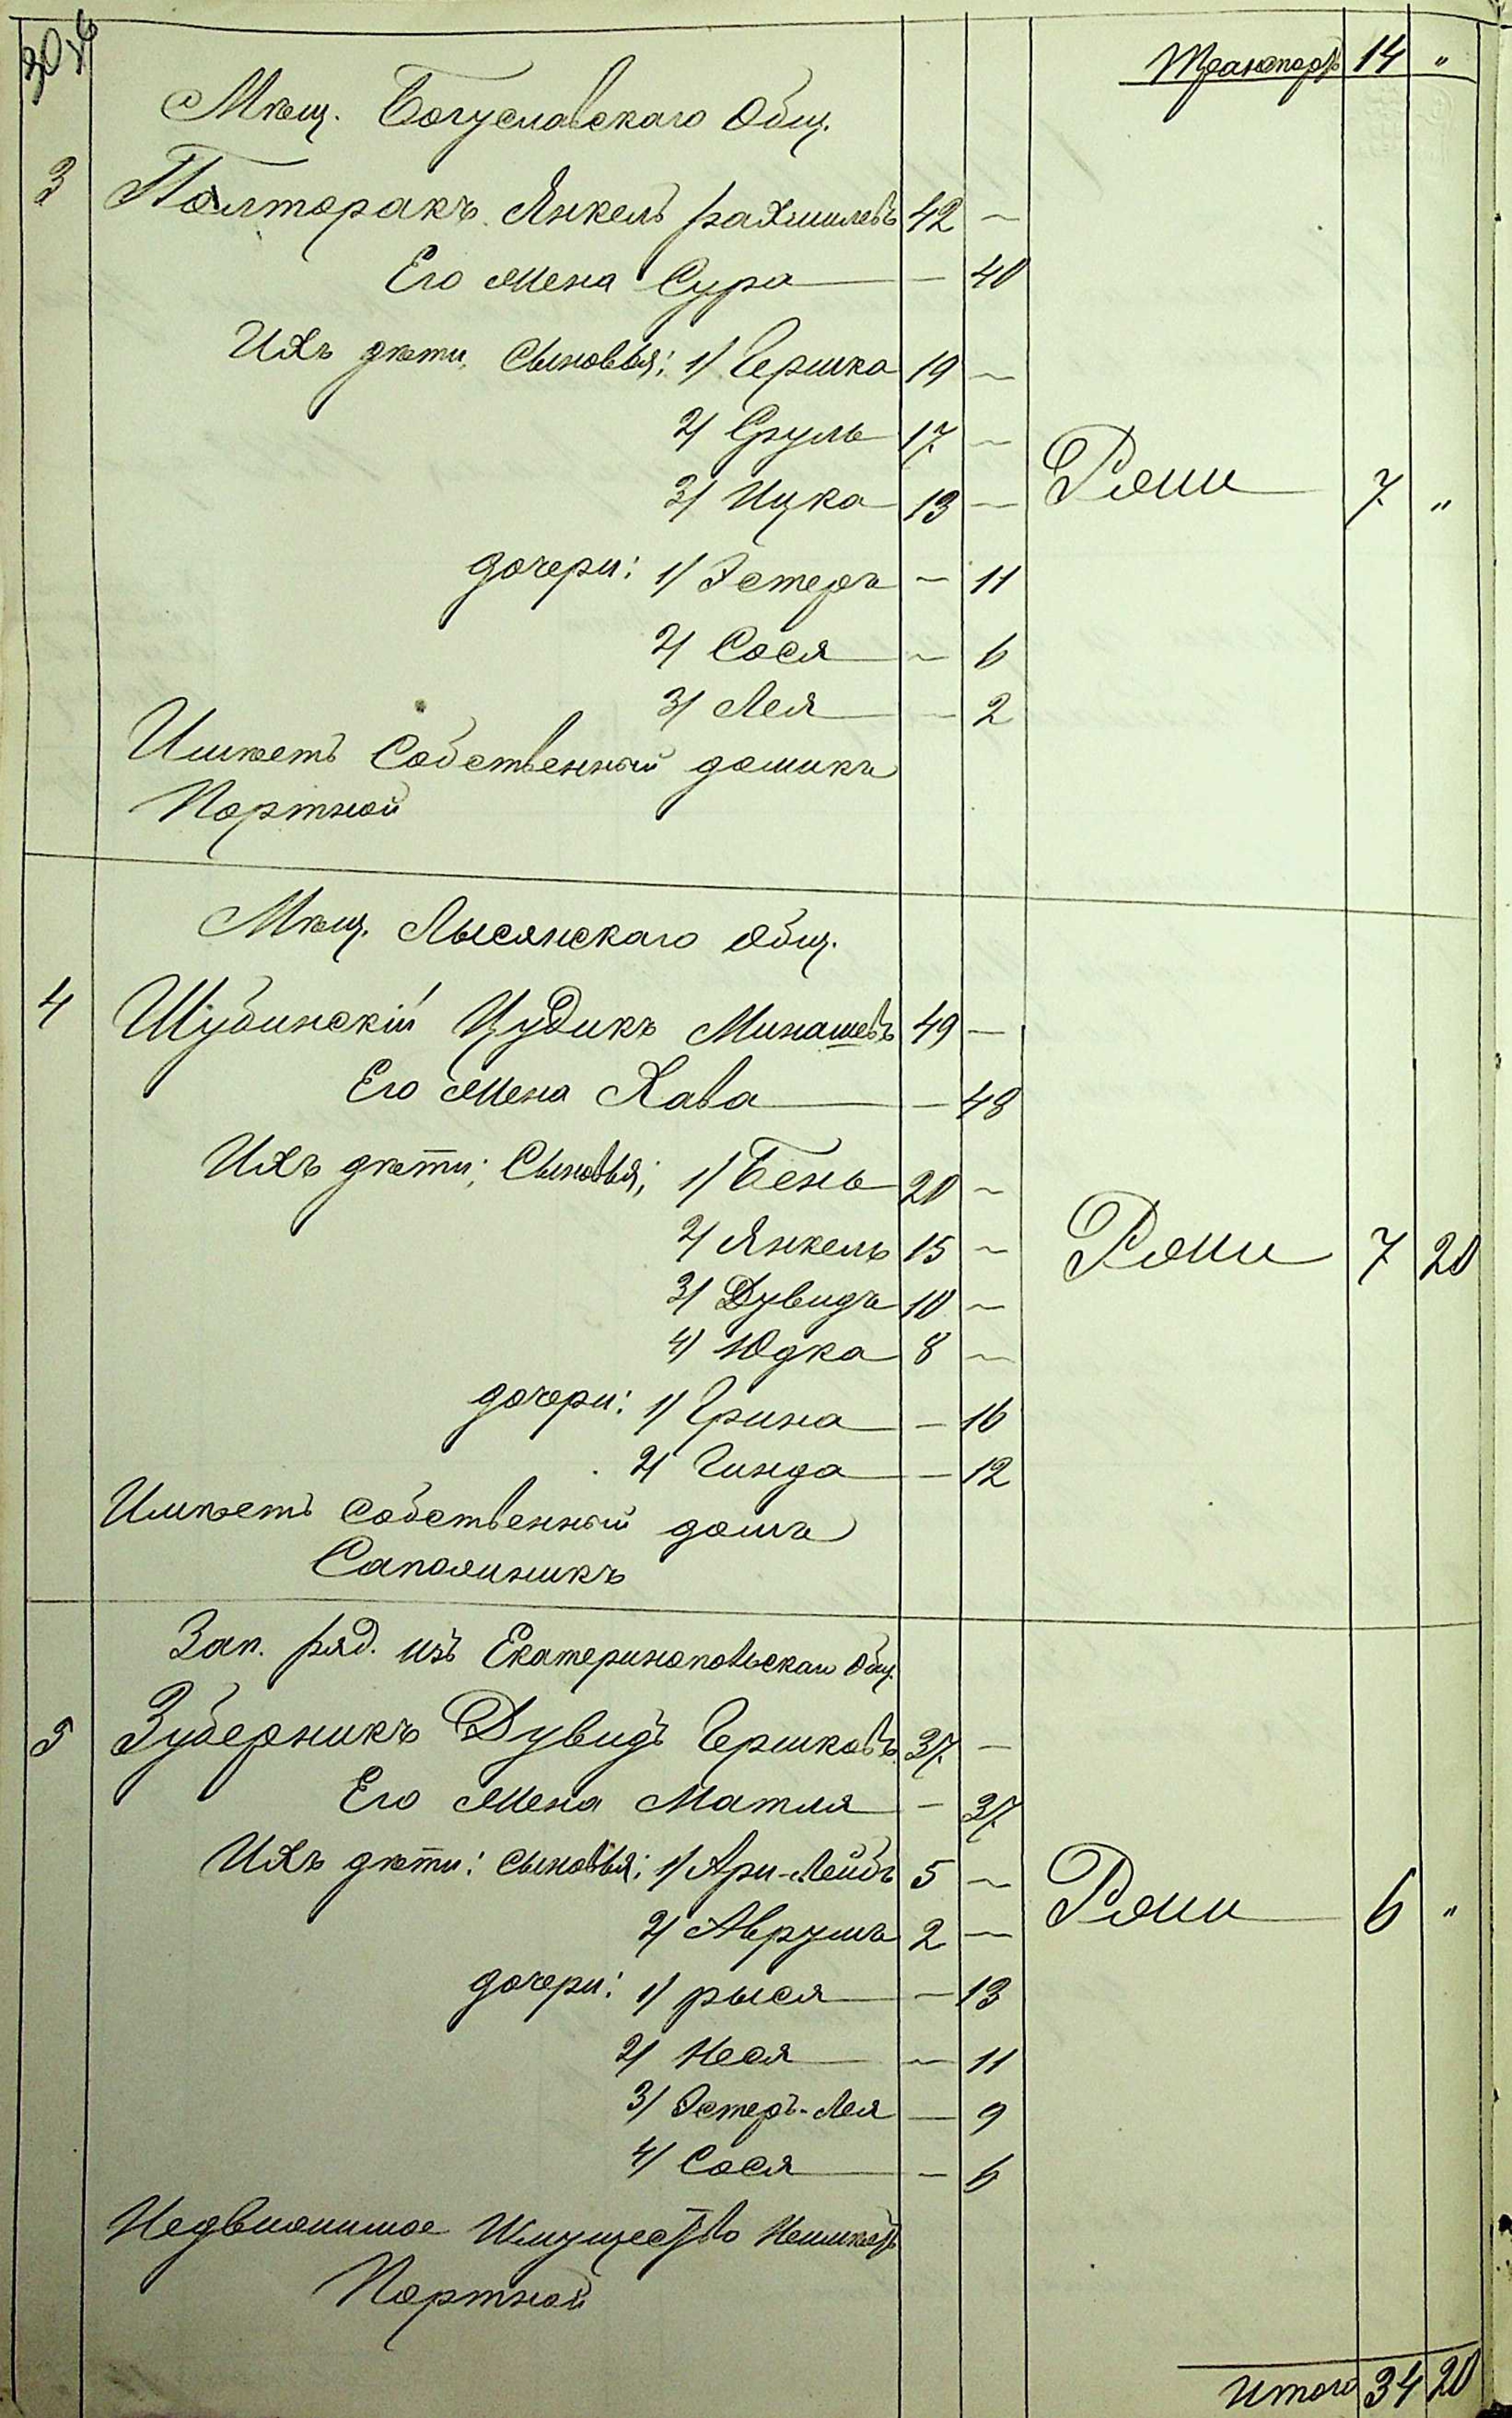 Транспортъ 14 "
Мѣщ. Богуславскаго Общ.
3 Палторакъ Янкель Рахмилевъ 42 —
Его жена Сура — 40
Ихъ дѣти, Сыновья: 1/ Гершко 19 —
2/ Сруль 17 —
3/ Ицко 13 —
Рош 7 "
дочери: 1/ Эстеръ — 11
2/ Сося — 6
3/ Лея — 2
Имѣетъ Собственный домикъ
Портной
Мѣщ. Лысянскаго Общ.
4 Шубинскій Цудикъ Минашевъ 49 —
Его жена Хава — 48
Ихъ дѣти: Сыновья: 1/ Бень 20 —
2/ Янкель 15 —
3/ Дувидъ 10 —
7 20
4/ Юдка 8 —
дочери: 1/ Грина — 16
2/ Гинда — 12
Имѣетъ Собственный домъ
Сапожникъ
Зап. ряд. изъ Екатеринопольскаго Общ.
5 Зуберникъ Дувидъ Гершковъ 37 —
Его жена Матля — 37
Ихъ дѣти: сыновья: 1/ Ари-Лейбъ 5 —
2/ Аврумъ 2 —
6 "
дочери: 1/ рыся — 13
2/ Нехя — 11
3/ Эстеръ-Лея — 9
4/ Сося — 6
Недвижимое Имущество Неимѣетъ
Портной
Итого 34 20